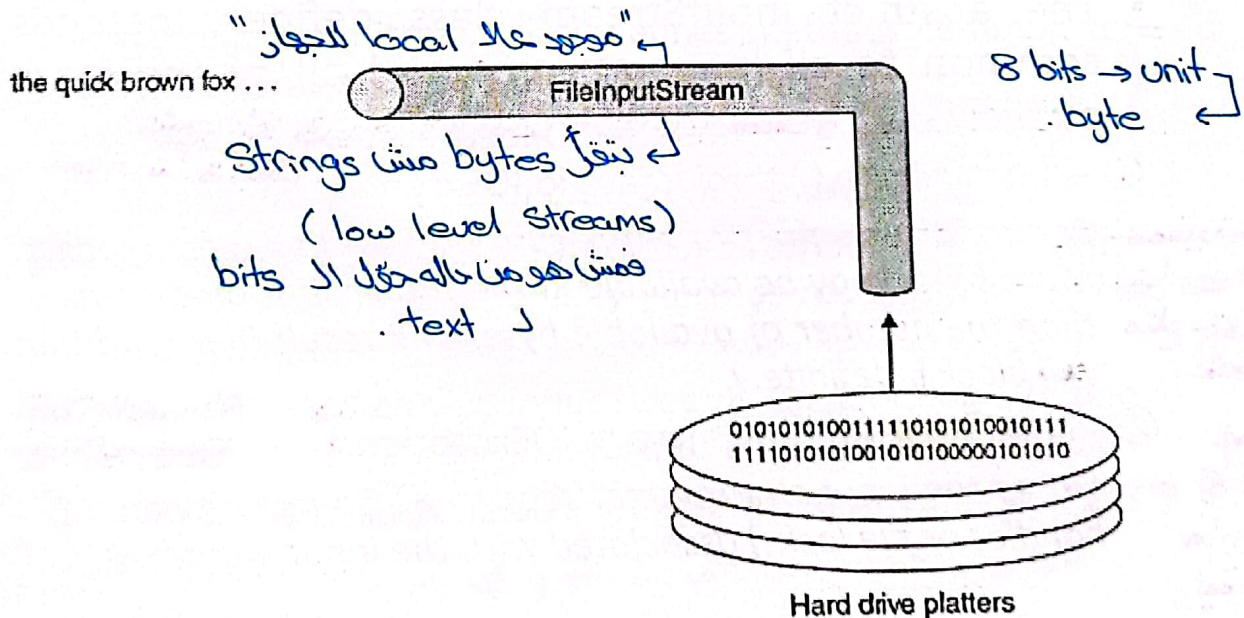 "موجود عالـ local للجهاز"
the quick brown fox ...
FileInputStream
8 bits → unit
byte
بتنقل bytes مش Strings
(low level Streams)
فمش هو من حاله حوّل الـ bits
لـ text.
010101010011111010101001011 1
1111010101001010100000101010
Hard drive platters